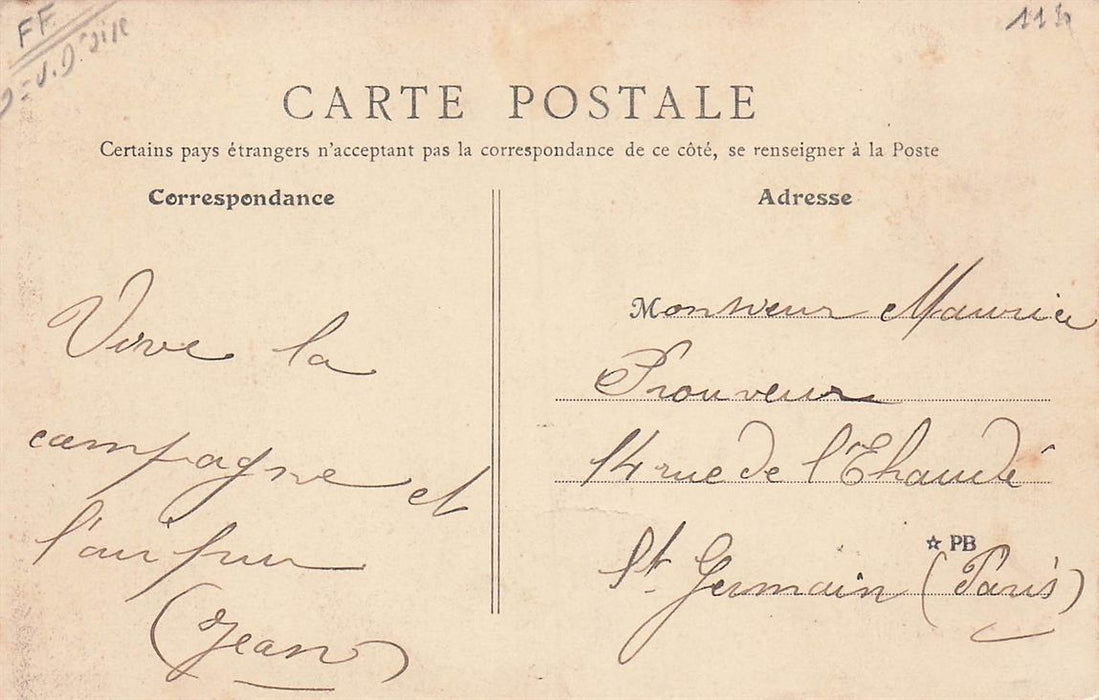 FF
114
CARTE POSTALE
Certains pays étrangers n'acceptant pas la correspondance de ce côté, se renseigner à la Poste
Correspondance
Vive la
campagne et
l'air pur
(Jean)
Adresse
Monsieur Maurice
Prouveur
14 rue de l'Ehaudé
☆ PB
St. Germain (Paris)